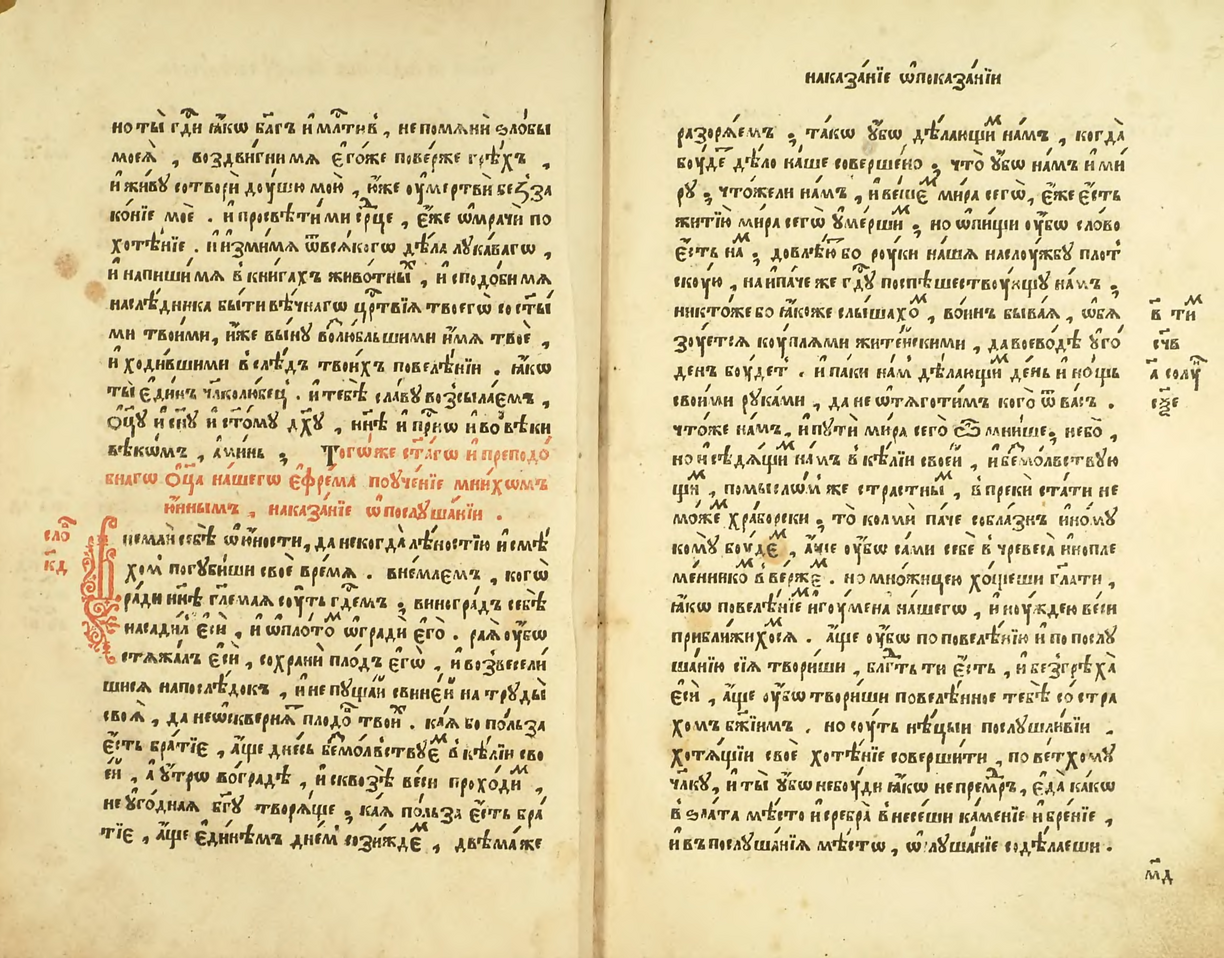 но ты̀ гд҇и ꙗ҆́кѡ бл҃гъ и҆ мл҇тивъ, не помѧнѝ ѕло́бы
моеѧ̀, воздви́гни мѧ є҆го́же пове́рже грѣ́хъ,
и҆ жи́вꙋ сотворѝ дꙋ́шꙋ мою̀, ю҆́же ᲂу҆мертвѝ беззⷶ
ко́нїе моѐ. и҆ просвѣти́ ми ср҇це, є҆́же ѡ҆мрачѝ по
хотѣ́нїе. и҆ и҆зми́ мѧ ѿ всѧ́когѡ дѣ́ла лꙋка́вагѡ,
и҆ напиши́ мѧ в кни́гахъ живо́тныⷯ, и҆ сподо́би мѧ
наслѣ́дника бы́ти вѣ́чнагѡ цр҇твїѧ твоегѡ̀ со ст҃ы́
ми твои́ми, и҆́же вы́нꙋ возлю́бльшими и҆́мѧ твоѐ,
и҆ ходи́вшими в слѣ́дъ твои́хъ повелѣ́нїи. ꙗ҆́кѡ
ты̀ є҆ди́нъ чл҃колю́бецъ. и҆ тебѣ̀ сла́вꙋ возсыла́емъ,
ѻ҆ц҃ꙋ̀ и҆ сн҃ꙋ и҆ ст҃о́мꙋ дх҃ꙋ, ны́нѣ и҆ при́сⷩѡ и҆ во вѣ́ки
вѣкѡ́мъ, а҆ми́нь; Тогѡ́же ст҃а́гѡ и҆ преподо́
бнагѡ ѻ҆ц҃а̀ на́шегѡ є҆фре́ма поꙋче́нїе мни́хѡмъ
ю҆́ннымъ, наказа́нїе ѡ҆ послꙋша́нїи.
сло́ⷡ
к҃д
Внема́й себѣ̀ ѿ ю҆́ности, да не когда̀ лѣ́ностїю и҆ смѣ́
хомъ погꙋби́ши своѐ вре́мѧ. вне́млемъ, когѡ̀
ра́ди ны́нѣ гл҃емаѧ сꙋ́ть гд҇емъ; виногра́дъ себѣ̀
насади́лъ є҆сѝ, и҆ ѡ҆плото́ⷨ ѡ҆градѝ є҆го̀. ра́ѧ ᲂу҆́бѡ
стѧжа́лъ є҆сѝ, сохранѝ пло́дъ є҆гѡ̀, и҆ возвесели́
шисѧ напослѣ́докъ, и҆ не пꙋща́й свине́й на трꙋды̀
своѧ̀, да не ѡ҆сквернѧ́ⷮ плодо́ⷡ твои́ⷯ. ка́ѧ бо по́льза
є҆́сть бра́тїе, а҆́ще дне́сь безмо́лвствꙋеⷨ в кѣ́лїи сво
е́й, а҆ ꙋ҆́трѡ во гра́дѣ, и҆ сквозѣ̀ ве́си прохо́диⷨ,
не ꙋ҆го́днаѧ бг҃ꙋ творѧ́ще; ка́ѧ по́льза є҆́сть бра́
тїе, а҆́ще є҆ди́нѣмъ дне́мъ сози́ждеⷨ, двѣма́ же
наказа́нїе ѡ҆ показа́нїи
разорѧ́емъ; та́кѡ ᲂу҆́бѡ дѣ́лающиⷨ на́мъ, когда̀
бꙋ́деⷮ дѣ́ло на́ше соверше́но; что̀ ᲂу҆́бѡ на́мъ и҆ ми́
рꙋ; что́жели на́мъ, и҆ ве́щеⷨ ми́ра сегѡ̀, є҆́же є҆́сть
житїю̀ ми́ра сегѡ̀ ᲂу҆ме́ршиⷨ; но ѡ҆ пи́щи ᲂу҆́бѡ сло́во
є҆́сть на́ⷨ; довлѣ́ютⷮ бо рꙋ́ки на́шѧ на слꙋ́жбꙋ пло́т
скꙋю, наипа́че же гд҇ꙋ поспѣ́шествꙋющꙋ на́мъ;
никто́же бо ꙗ҆́коже слы́шахоⷨ, во́инъ быва́ѧ, ѡ҆бѧ́
зꙋетсѧ кꙋ́плѧми жите́искими, да воево́дѣ ᲂу҆го́
денъ бꙋ́детъ. и҆ па́ки на́м дѣ́лающиⷨ де́нь и҆ но́щь
свои́ми рꙋка́ми, да не ѡ҆тѧготи́мъ кого̀ ѿ ва́съ.
что́же на́мъ, и҆ пꙋтѝ ми́ра сего̀ ѽ мни́ше; не́бо,
но и҆ сѣдѧ́щиⷨ на́мъ в кѣ́лїи свое́й, и҆ безмо́лвствꙋю
щиⷨ, по́мыслѡⷨ же стра́стныⷨ, в пре́ки ста́ти не
мо́жеⷨ хра́борски; то кольмѝ па́че собла́знъ и҆но́мꙋ
комꙋ̀ бꙋ́деⷨ, а҆́ще ᲂу҆́бѡ са́ми себѐ в чревеса̀ и҆нопле
ме́нникоⷨ вве́ржеⷨ. но мно́жицею хо́щеши гл҃ати,
ꙗ҆́кѡ повелѣ́нїеⷨ и҆гꙋ́мена на́шегѡ, и҆ нꙋ́ждею ве́си
прибли́жихосѧ. а҆́ще ᲂу҆́бѡ по повелѣ́нїю и҆ по послꙋ
ша́нїю сїѧ̀ твори́ши, бл҃гⷣть ти є҆́сть, и҆ без грѣ́ха̀
є҆сѝ, а҆́ще ᲂу҆́бѡ твори́ши повелѣ́нное тебѣ̀ со стра́
хомъ бж҃їимъ. но сꙋ́ть нѣ́цыи послꙋшли́вїи.
хотѧ́щїи своѐ хотѣ́нїе соверши́ти, по ве́тхомꙋ
чл҃кꙋ, и҆ ты̀ ᲂу҆́бѡ не бꙋ́ди ꙗ҆́кѡ непремⷣръ, є҆да̀ ка́кѡ
в ѕла́та мѣ́сто и҆ сребра̀ внесе́ши ка́менїе и҆ бре́нїе,
и҆ въ послꙋша́нїѧ мѣ́стѡ, ѡ҆слꙋша́нїе содѣ́лаеши.
в҃ тиⷨ
сч҃в
а҃ солꙋⷩ
м҃д